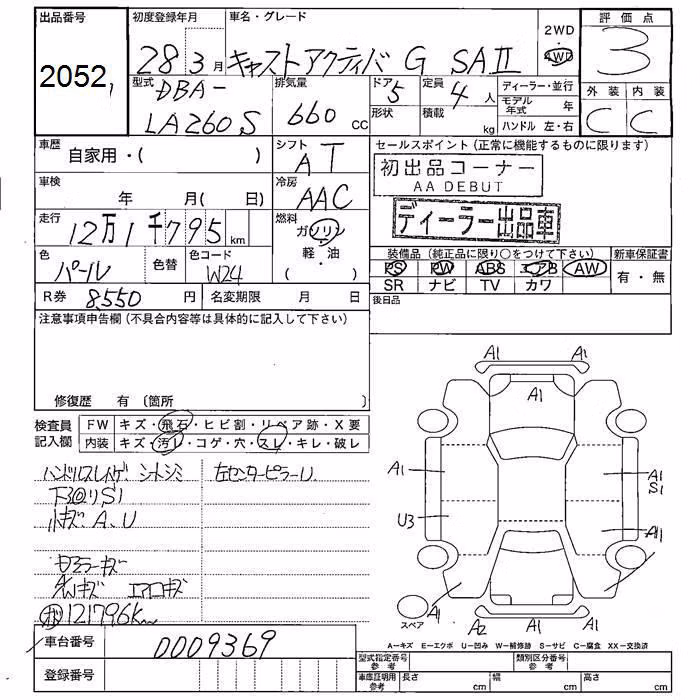 出品番号 初度登録年月 車名・グレード 2WD 評価点
2052 28 3月 キャストアクティバ G SAⅡ 4WD 3
型式 DBA- 排気量 ドア 5 定員 4人 ディーラー・並行 外装 内装
LA260S 660 CC 形状 積載 kg モデル年式 年 C C
ハンドル 左・右
車歴 自家用・( ) シフト AT セールスポイント (正常に機能するものに限ります)
初出品コーナー
AA DEBUT
車検 年 月( 日) 冷房 AAC
ディーラー出品車
走行 12万1千795km 燃料 ガソリン
軽・油
( )
色 パール 色替 色コード W24
装備品 (純正品に限り○をつけて下さい) 新車保証書
PS PW ABS エアB AW 有・無
SR ナビ TV カワ
R券 8,550円 名変期限 月 日 後日品
注意事項申告欄 (不具合内容等は具体的に記入して下さい)
修復歴 有 〔箇所
検査員 FW キズ・飛石・ヒビ割・リペア跡・X要
記入欄 内装 キズ・汚レ・コゲ・穴・スレ・キレ・破レ
ハンドルスレハゲ、シートシミ 左センターピラーU
下回りS1
小キズA、U
キズ
AWキズ エアロキズ
121796km
A1 A1 A1
A1 A1
S1
U3 A1
A1 A2 A1 A1
スペア
A−キズ E−エクボ U−凹み W−補修跡 S−サビ C−腐食 XX−交換済
車台番号 0009369
型式指定番号 参考 類別区分番号 参考
登録番号 車庫証明用 参考 長さ cm 幅 cm 高さ cm